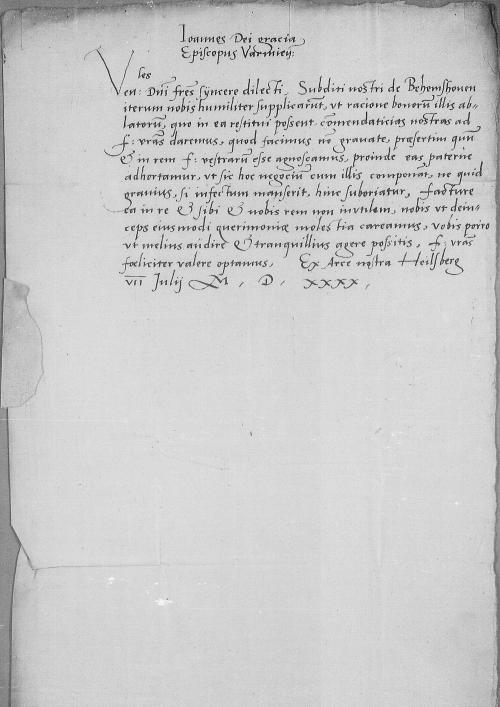 Ioannes Dei gracia
Episcopus Varmień:
Venles: Dnī frēs syncere dilecti, Subditi nostri de Behemshouen
iterum nobis humiliter supplicarūt, ut racione bonorū illis ab-
latorū, quo in ea restitui possent comēdaticias nostras ad
f: vrās daremus, quod facimus nō grauate, præsertim quū
& in rem f: vestrarū esse agnoscamus, proinde eas paterne
adhortamur, ut sic hoc negociū cum illis componāt, ne quid
grauius, si infectum manserit, hinc suboriatur, Facturæ
ea in re & sibi & nobis rem non inutilem, nobis ut dein-
ceps eiusmodi querimoniæ molestia careamus, vobis porro
ut melius audire & tranquillius agere possitis, f: vrās
fœliciter valere optamus, Ex Arce nostra Heilsberg
VII Julij M, D, XXXX,